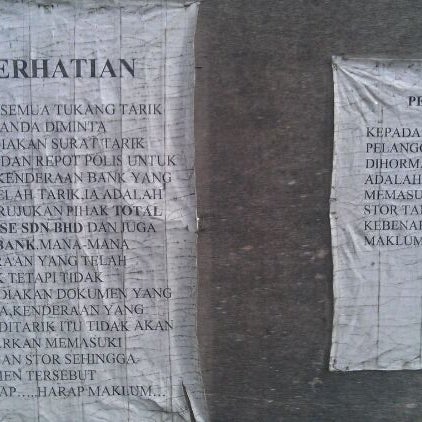 ERHATIAN
SEMUA TUKANG TARIK
ANDA DIMINTA
DIAKAN SURAT TARIK
DAN REPOT POLIS UNTUK
KENDERAAN BANK YANG
ELAH TARIK.IA ADALAH
RUJUKAN PIHAK TOTAL
SE SDN BHD DAN JUGA
BANK.MANA-MANA
RAAN YANG TELAH
K TETAPI TIDAK
DIAKAN DOKUMEN YANG
A,KENDERAAN YANG
DITARIK ITU TIDAK AKAN
ARKAN MEMASUKI
AN STOR SEHINGGA
MEN TERSEBUT
AP.....HARAP MAKLUM...
PE
KEPADA
PELANGG
DIHORMA
ADALAH
MEMASU
STOR TA
KEBENA
MAKLUM